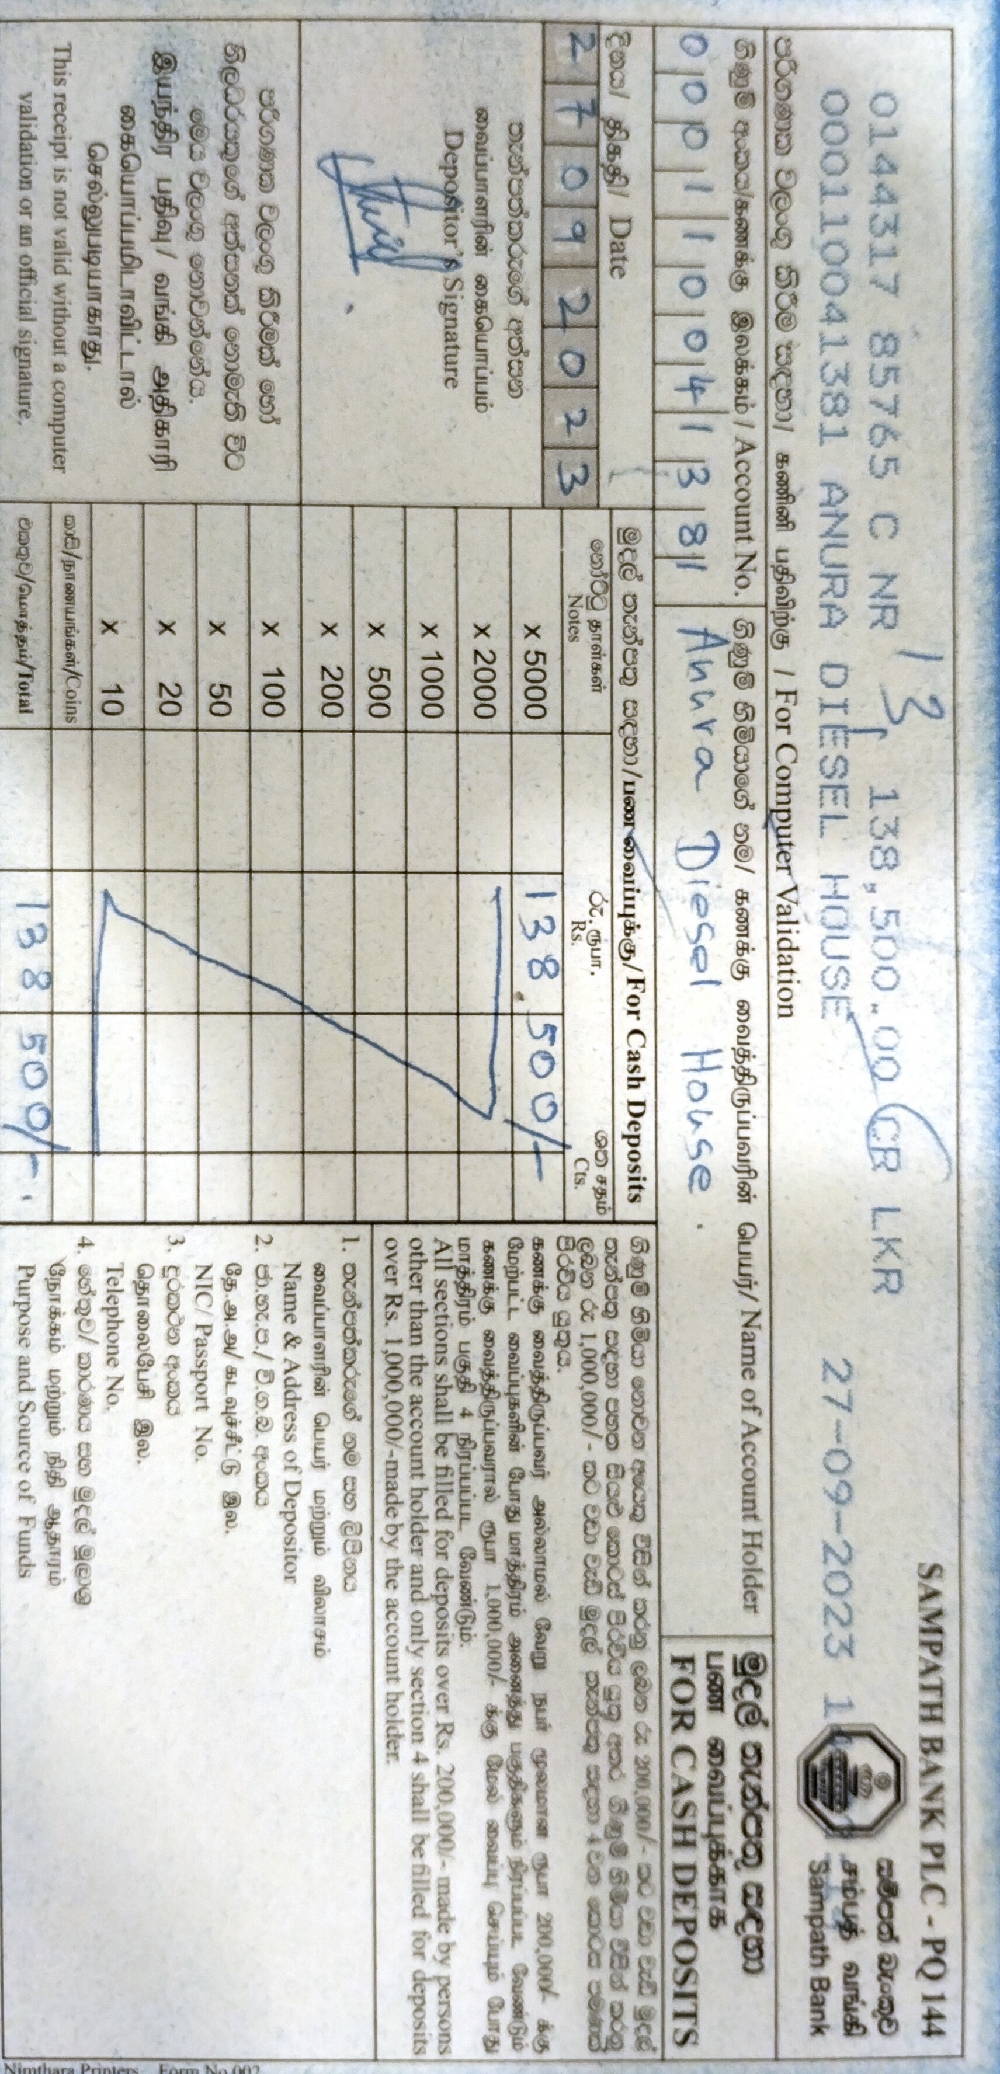 SAMPATH BANK PLC - PQ 144
සම්පත් බැංකුව
சம்பத் வங்கி
Sampath Bank
014317 85765 C NR 138,500.00 CR LKR
000110041381 ANURA DIESEL HOUSE 27-09-2023
පරිගණක වලංගු කිරීම සඳහා/ கணினி பதிவிற்கு / For Computer Validation
ගිණුම් අංකය/கணக்கு இலக்கம் / Account No.
0 0 0 1 1 0 0 4 1 3 8 1
ගිණුම් හිමියාගේ නම/ கணக்கு வைத்திருப்பவரின் பெயர்/ Name of Account Holder
Anura Diesel House.
මුදල් තැන්පතු සඳහා
பண வைப்புக்காக
FOR CASH DEPOSITS
දිනය/ திகதி/ Date
2 7 0 9 2 0 2 3
තැන්පත්කරුගේ අත්සන
வைப்பாளரின் கையொப்பம்
Depositor's Signature
පරිගණක වලංගු කිරීමක් හෝ
නිලධාරියකුගේ අත්සනක් නොමැති විට
මෙය වලංගු නොවන්නේය.
இயந்திர பதிவு/ வங்கி அதிகாரி
கையொப்பமிடாவிட்டால்
செல்லுபடியாகாது.
This receipt is not valid without a computer
validation or an official signature.
මුදල් තැන්පතු සඳහා/பண வைப்புக்கு/For Cash Deposits
නෝට්ටු தாள்கள் Notes රු. ரூபா. Rs. ශත சதம் Cts.
x 5000 138,500/-
x 2000
x 1000
x 500
x 200
x 100
x 50
x 20
x 10
කාසි/நாணயங்கள்/Coins
එකතුව/மொத்தம்/Total 138 500/-
ගිණුම් හිමියා නොවන අයෙකු විසින් කරනු ලබන රු 200,000/- කට වඩා වැඩි මුදල්
කணக்கு வைத்திருப்பவர் அல்லாமல் வேறு நபர் மூலமான ரூபா 200,000/- க்கு
மேற்பட்ட வைப்புகளின் போது மாத்திரம் அனைத்து பகுதிகளும் நிரப்பப்பட வேண்டும்
கணக்கு வைத்திருப்பவரால் ரூபா 1,000,000/- க்கு மேல் வைப்பு செய்யும் போது
மாத்திரம் பகுதி 4 நிரப்பப்பட வேண்டும்.
All sections shall be filled for deposits over Rs. 200,000/- made by persons
other than the account holder and only section 4 shall be filled for deposits
over Rs. 1,000,000/-made by the account holder.
1. තැන්පත්කරුගේ නම සහ ලිපිනය
வைப்பாளரின் பெயர் மற்றும் விலாசம்
Name & Address of Depositor
2. ජා.හැ.ප./ වි.ග.බ. අංකය
தே.அ.அ/கடவுச்சீட்டு இல.
NIC/ Passport No.
3. දුරකථන අංකය
தொலைபேசி இல.
Telephone No.
4. හේතුව/ කාරණය සහ මුදල් මූලාශ්‍ර
நோக்கம் மற்றும் நிதி ஆதாரம்
Purpose and Source of Funds
Nimthara Printers Form No.002